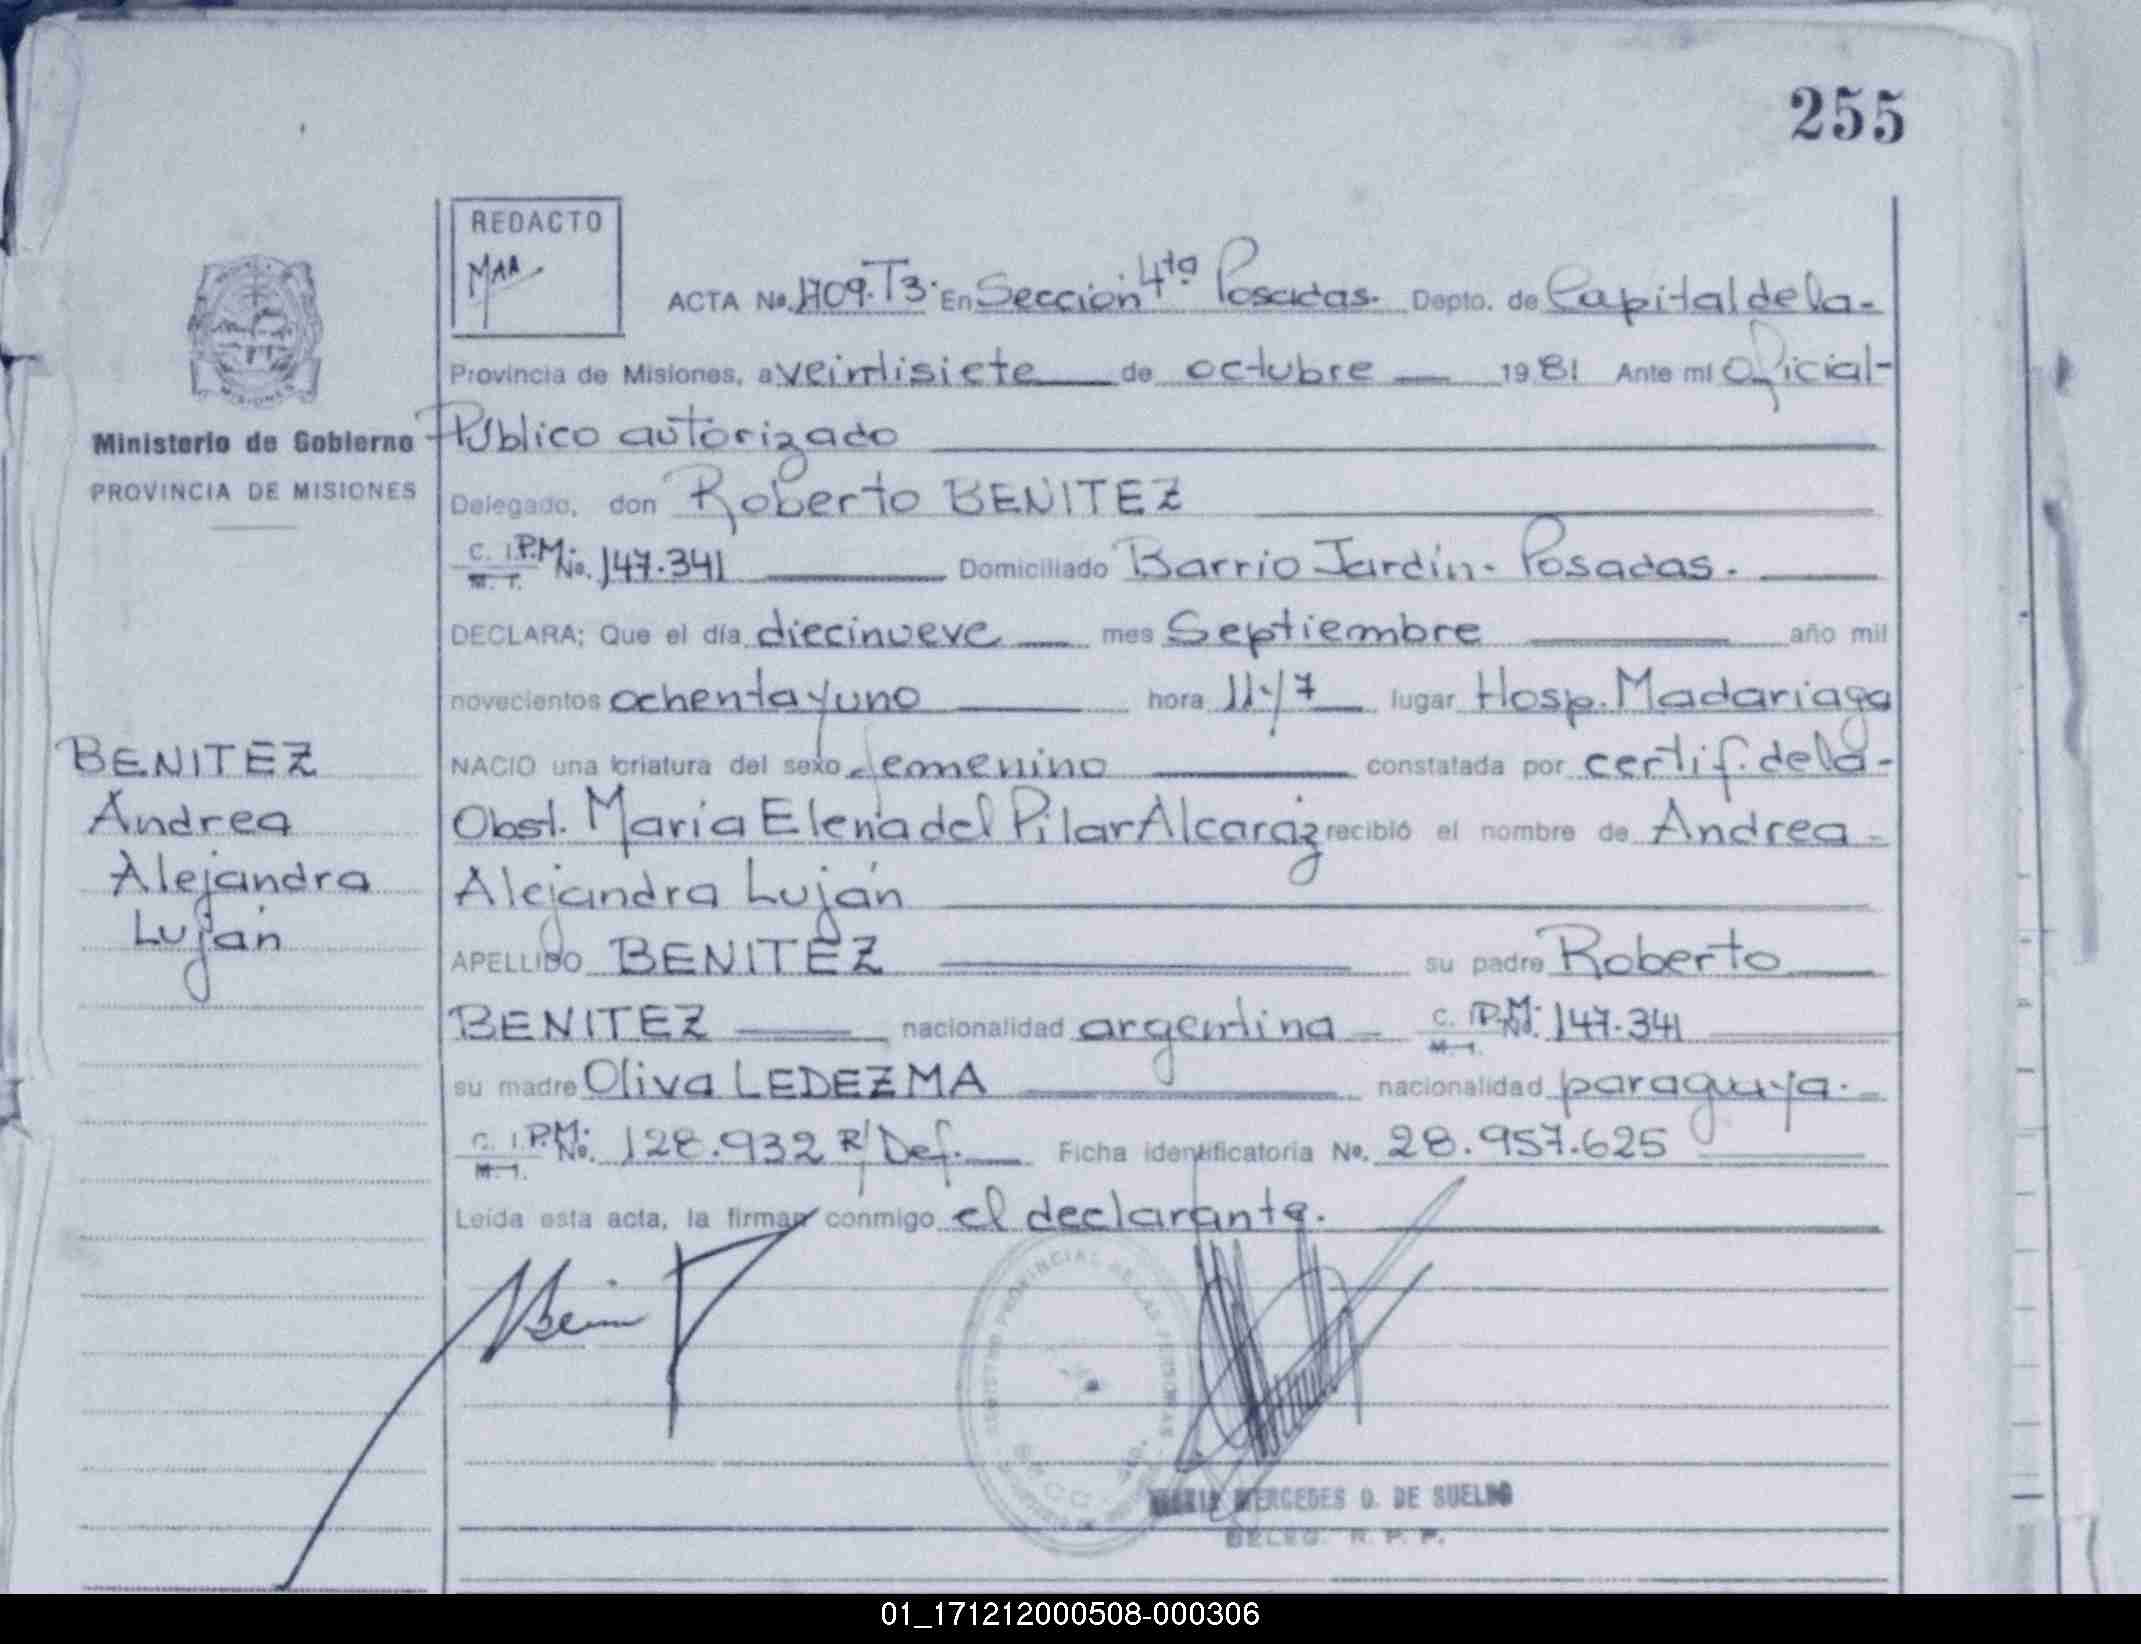 255
REDACTO
MAA
ACTA No. 1709. T3. En Sección 4ta Posadas. Depto. de Capital de la-
Provincia de Misiones, a veintisiete de octubre 1981 Ante mi Oficial-
Público autorizado
Ministerio de Gobierno
PROVINCIA DE MISIONES
Delegado, don Roberto BENITEZ
C. I. P.M. No. 147.341 Domiciliado Barrio Jardín. Posadas.
M. I.
DECLARA; Que el día diecinueve mes Septiembre año mil
novecientos ochenta y uno hora 11 y 7 lugar Hosp. Madariaga
NACIO una criatura del sexo femenino constatada por certif. de la-
Obst. María Elena del Pilar Alcaraz recibió el nombre de Andrea-
Alejandra Luján
BENITEZ
Andrea
Alejandra
Luján
APELLIDO BENITEZ su padre Roberto
BENITEZ nacionalidad argentina C. I. P.M. No. 147.341
M. I.
su madre Oliva LEDEZMA nacionalidad paraguya.
C. I. P.M. No. 128.932 R/Def. Ficha identificatoria No. 28.957.625
M. I.
Leída esta acta, la firman conmigo el declarante.
REGISTRO PROVINCIAL DE LAS PERSONAS
MARIA MERCEDES D. DE SUELDO
DELEG. R. P. P.
01_171212000508-000306